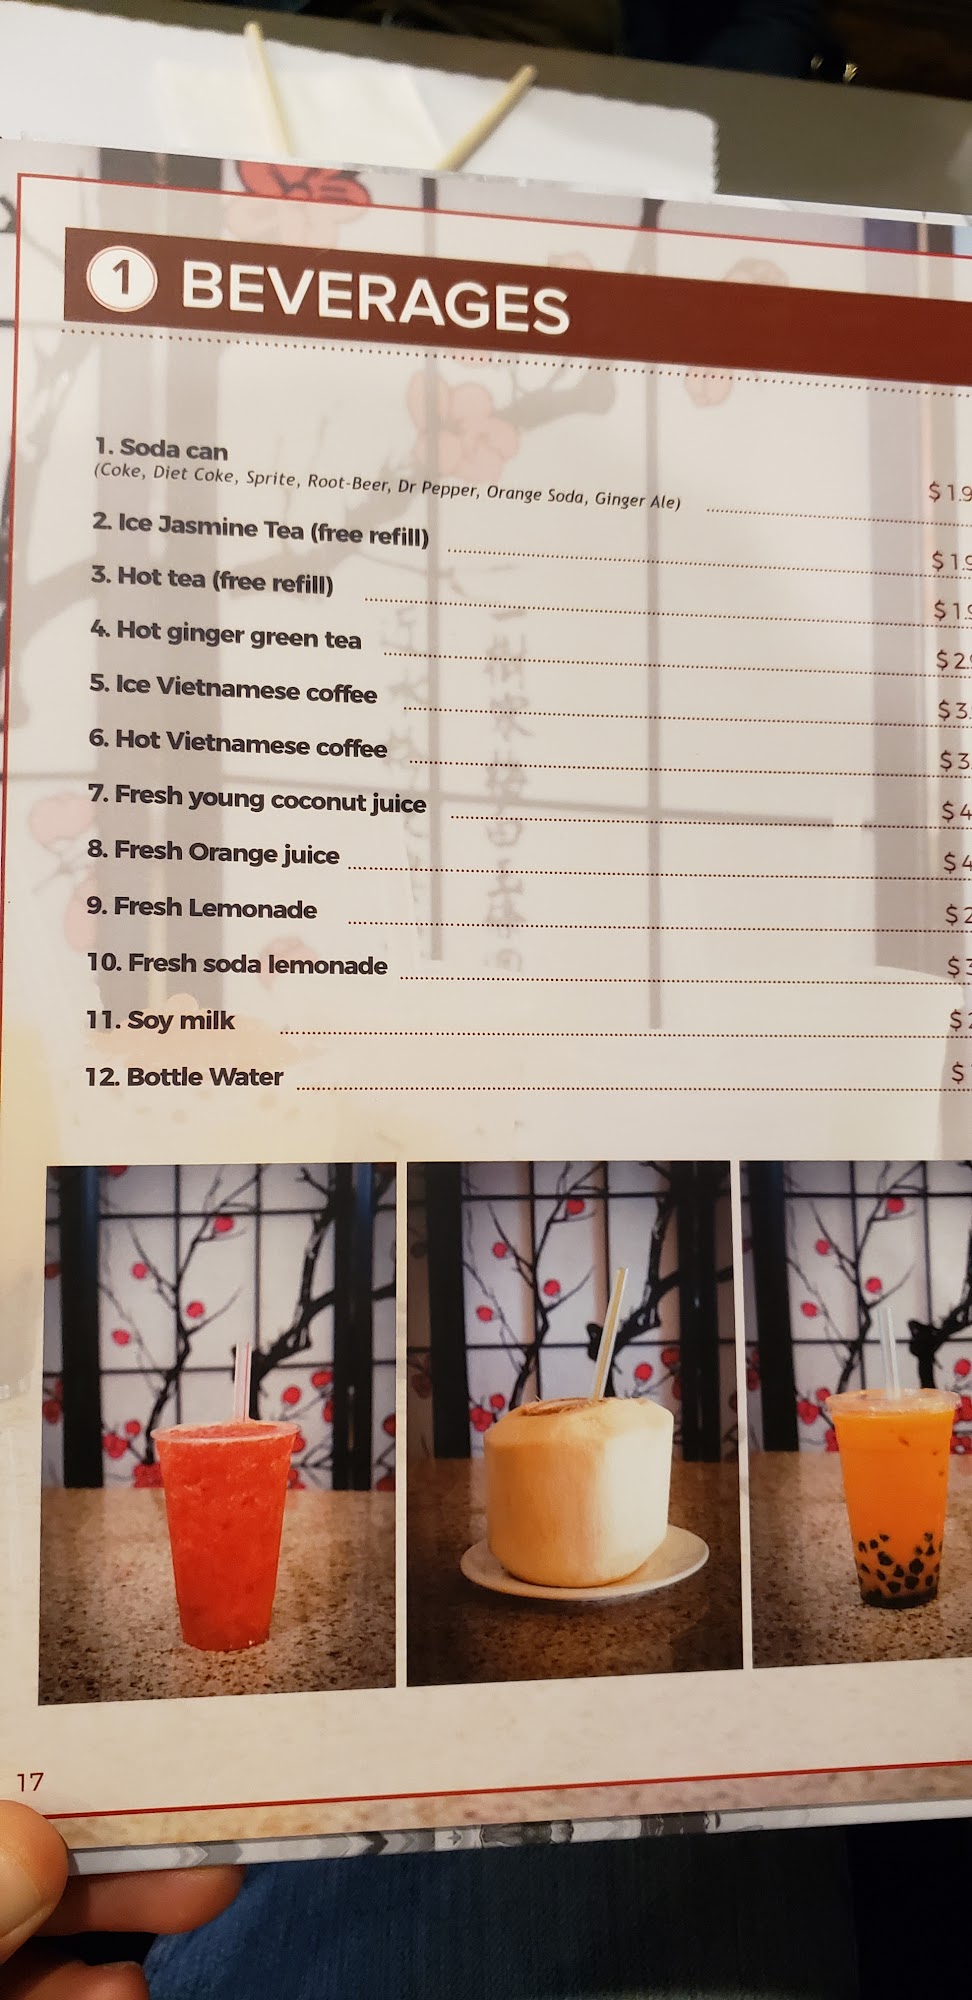 1 BEVERAGES
1. Soda can
(Coke, Diet Coke, Sprite, Root-Beer, Dr Pepper, Orange Soda, Ginger Ale) $1.9
2. Ice Jasmine Tea (free refill) $1.9
3. Hot tea (free refill) $1.9
4. Hot ginger green tea $2.9
5. Ice Vietnamese coffee $3.
6. Hot Vietnamese coffee $3.
7. Fresh young coconut juice $4
8. Fresh Orange juice $4
9. Fresh Lemonade $2
10. Fresh soda lemonade $3
11. Soy milk $2
12. Bottle Water $
17